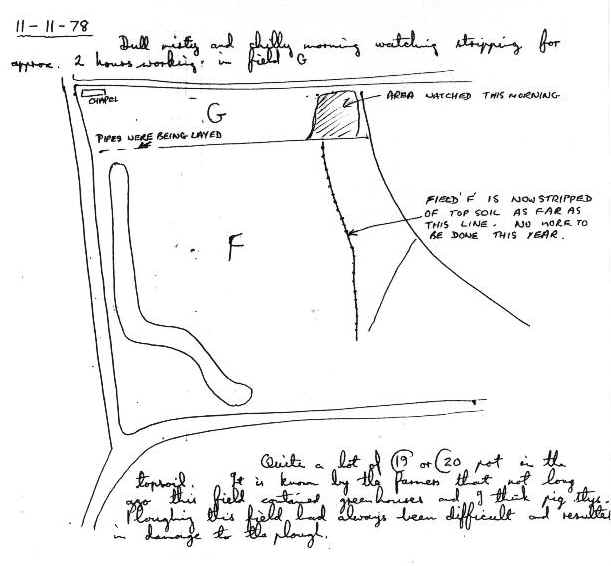 11-11-78
Dull misty and chilly morning watching stripping for
approx. 2 hours working. in field G
CHAPEL
G
AREA WATCHED THIS MORNING
PIPES WERE BEING LAYED
FIELD 'F' IS NOW STRIPPED
OF TOP SOIL AS FAR AS
THIS LINE. NO MORE TO
BE DONE THIS YEAR.
F
Quite a lot of C19 or C20 pot in the
topsoil. It is known by the farmer that not long
ago this field contained greenhouses and I think pig stys.
Ploughing this field had always been difficult and resulted
in damage to the plough.